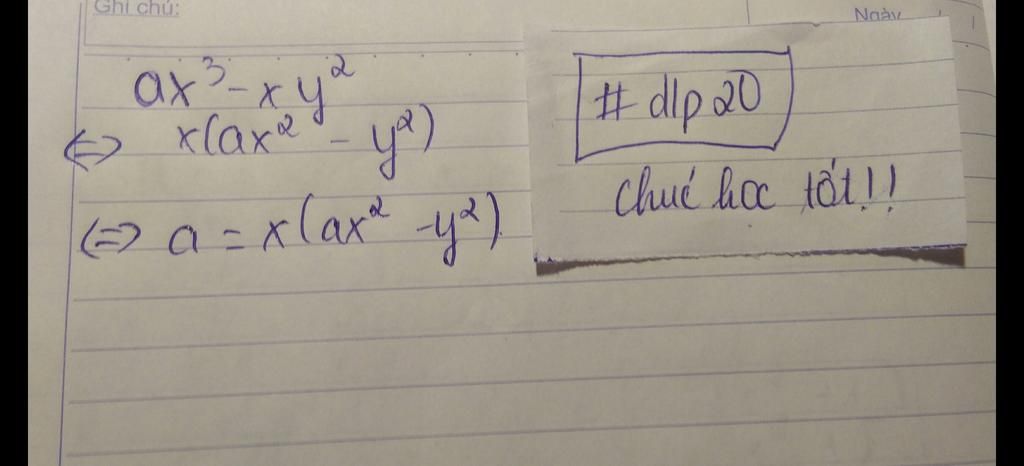 Ghi chú:
Ngày
ax³ - xy²
⇔ x(ax² - y²)
⇔ a = x(ax² - y²)
# dlp20
chuế học tốt!!